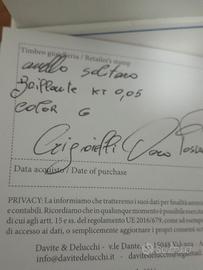 Timbro gioielleria / Retailer's stamp
anello solitario
Brillante KT 0,05
COLOR G
Data acquisto / Date of purchase
PRIVACY: La informiamo che tratteremo i suoi dati per finalità
e contabili. Ricordiamo che in qualunque momento è possibile
di cui agli artt. 15 e ss. del regolamento UE 2016/679, come
di accesso ai dati, o semplicemente aggiornare i propri
Davite & Delucchi - v.le Dante, 15048 Valenza
info@davitedelucchi.it